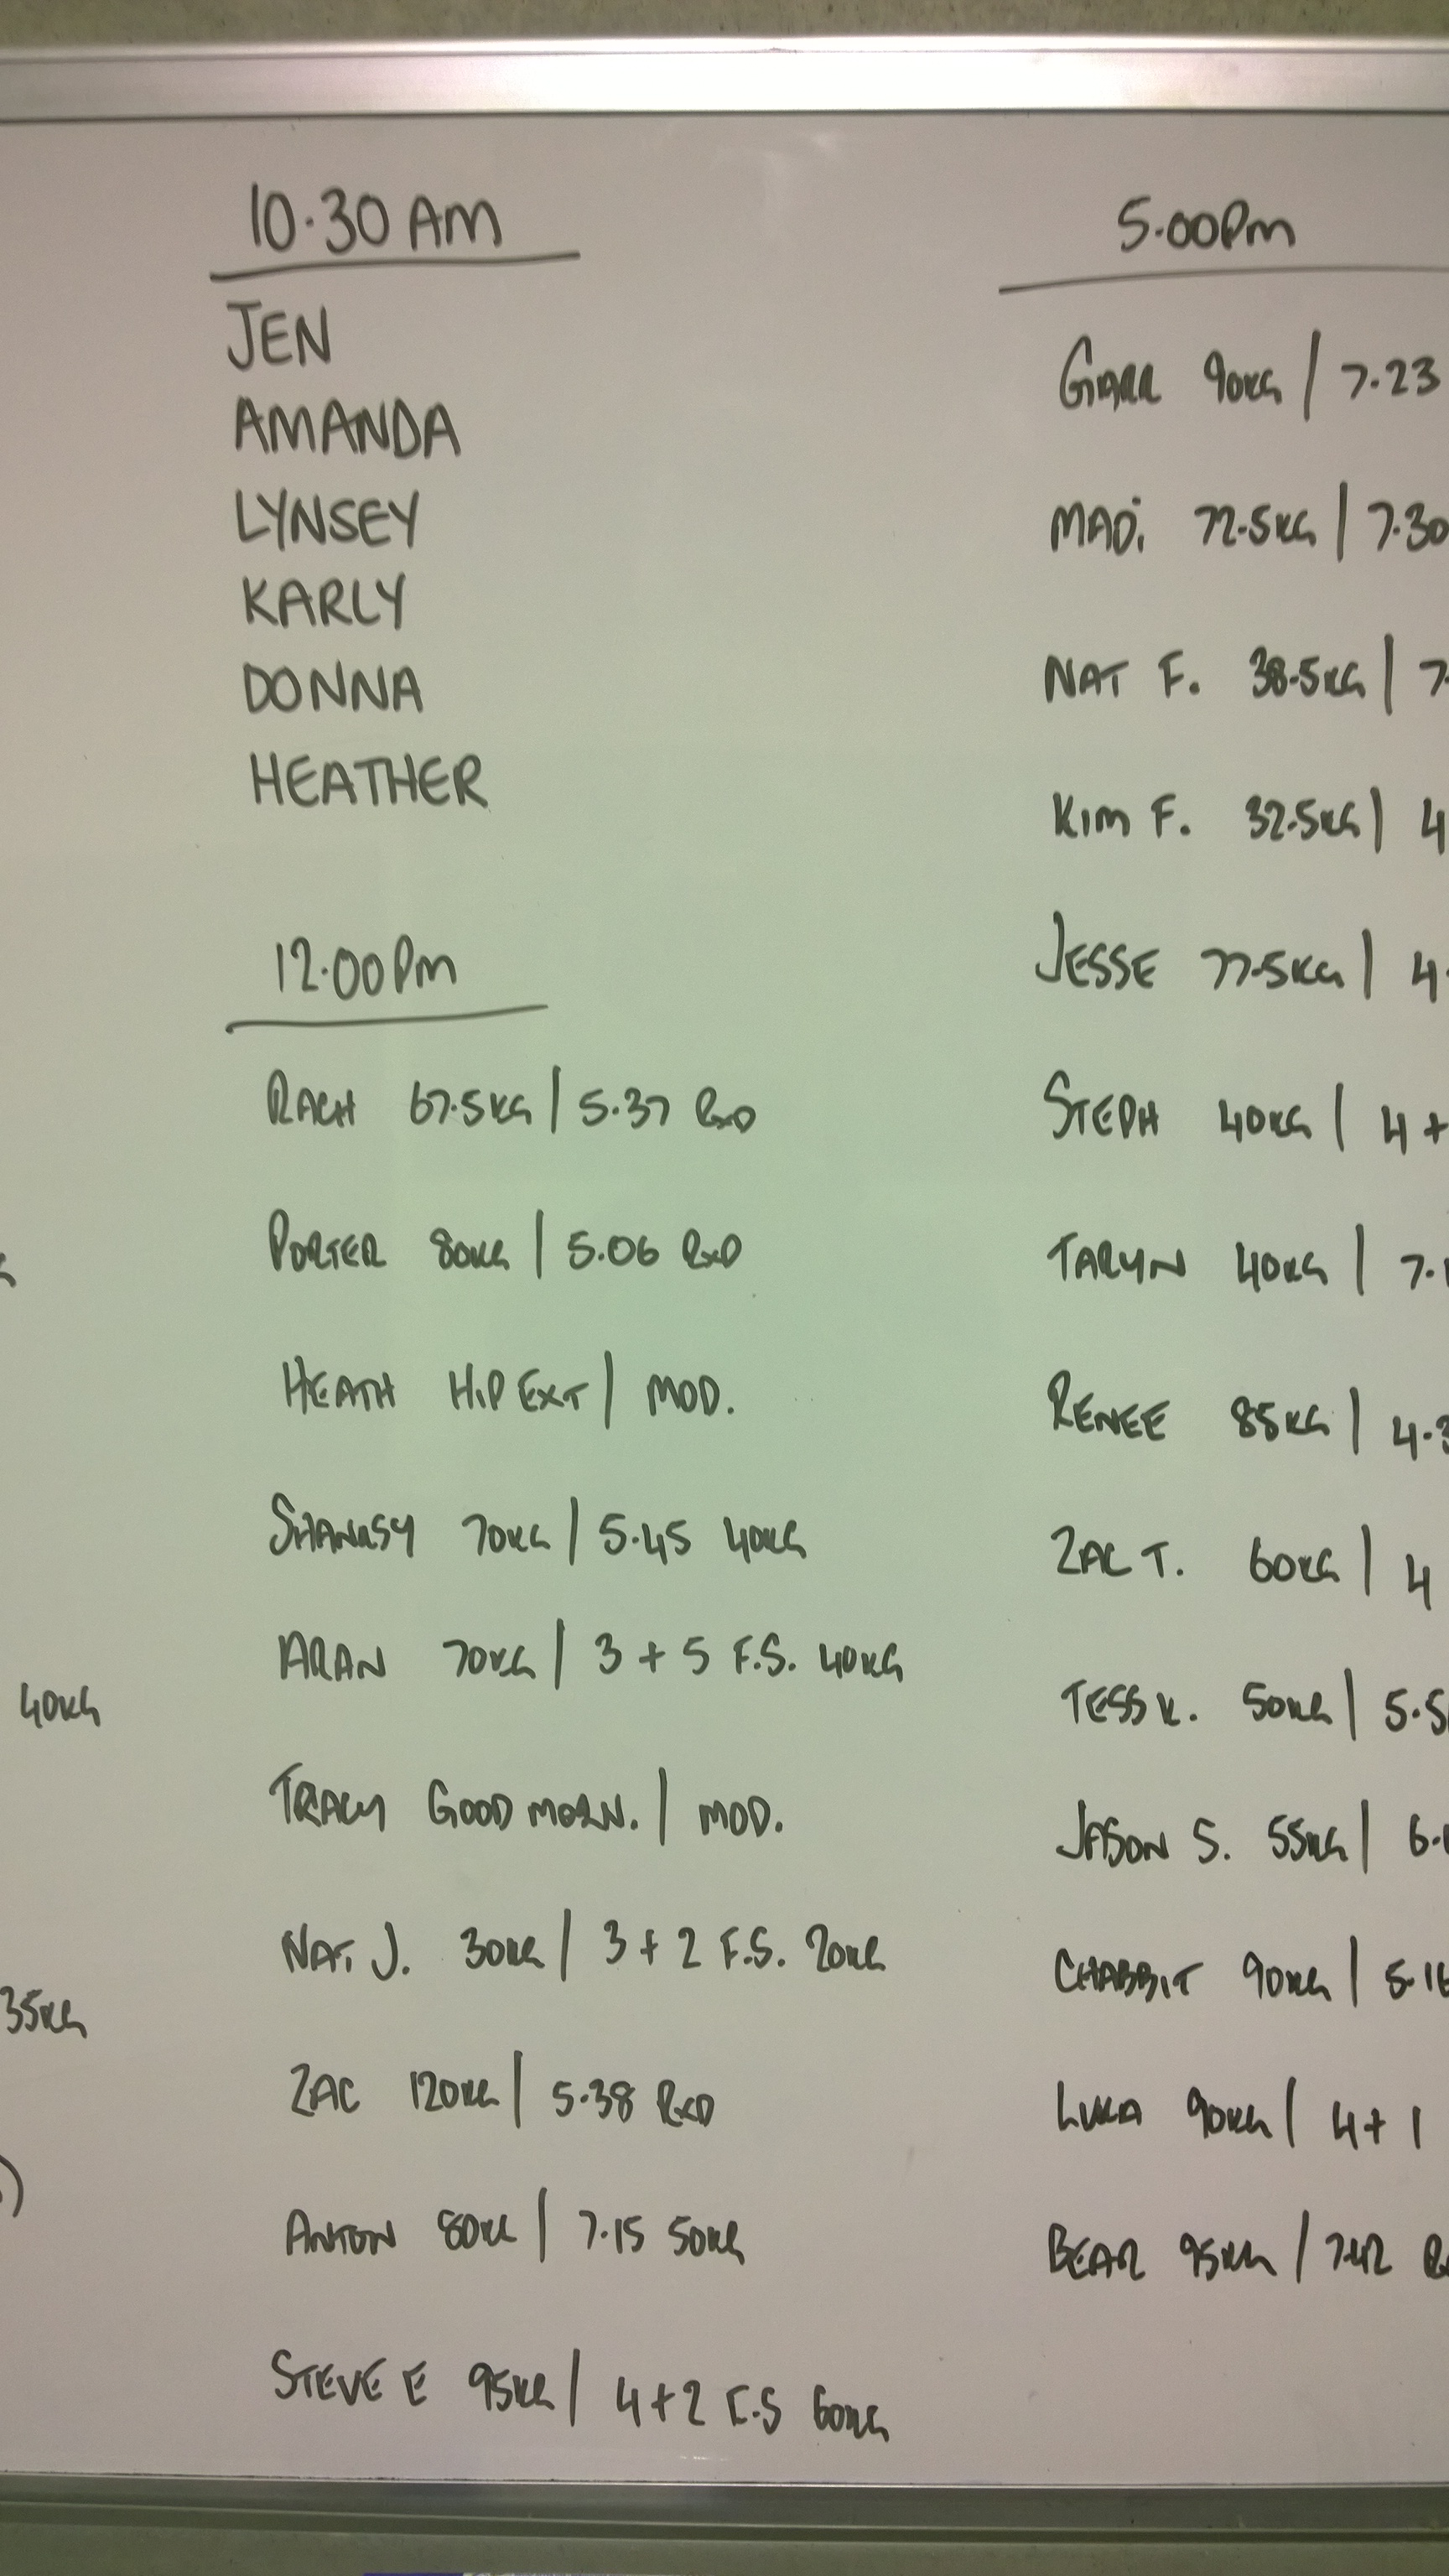 10.30 AM
JEN
AMANDA
LYNSEY
KARLY
DONNA
HEATHER
12.00PM
RACH 67.5KG | 5.37 RXD
PORTER 80KG | 5.06 RXD
HEATH HIP EXT | MOD.
SHANKSY 70KG | 5.45 40KG
ARAN 70KG | 3 + 5 F.S. 40KG
TRACY GOOD MORN. | MOD.
NAT J. 30KG | 3 + 2 F.S. 20KG
ZAC 120KG | 5.38 RXD
ANTON 80KG | 7.15 50KG
STEVE E 95KG | 4+2 F.S 60KG
5.00PM
GARR 90KG | 7.23
MADi 72.5KG | 7.30
NAT F. 38.5KG | 7.
KIM F. 32.5KG | 4
JESSE 77.5KG | 4.
STEPH 40KG | 4 +
TARYN 40KG | 7.1
RENEE 85KG | 4.3
ZAC T. 60KG | 4
TESS K. 50KG | 5.5
JASON S. 55KG | 6.
CHABBIT 90KG | 5.16
LUKA 90KG | 4 + 1
BEAR 95KG | 7.42
40KG
35KG
)